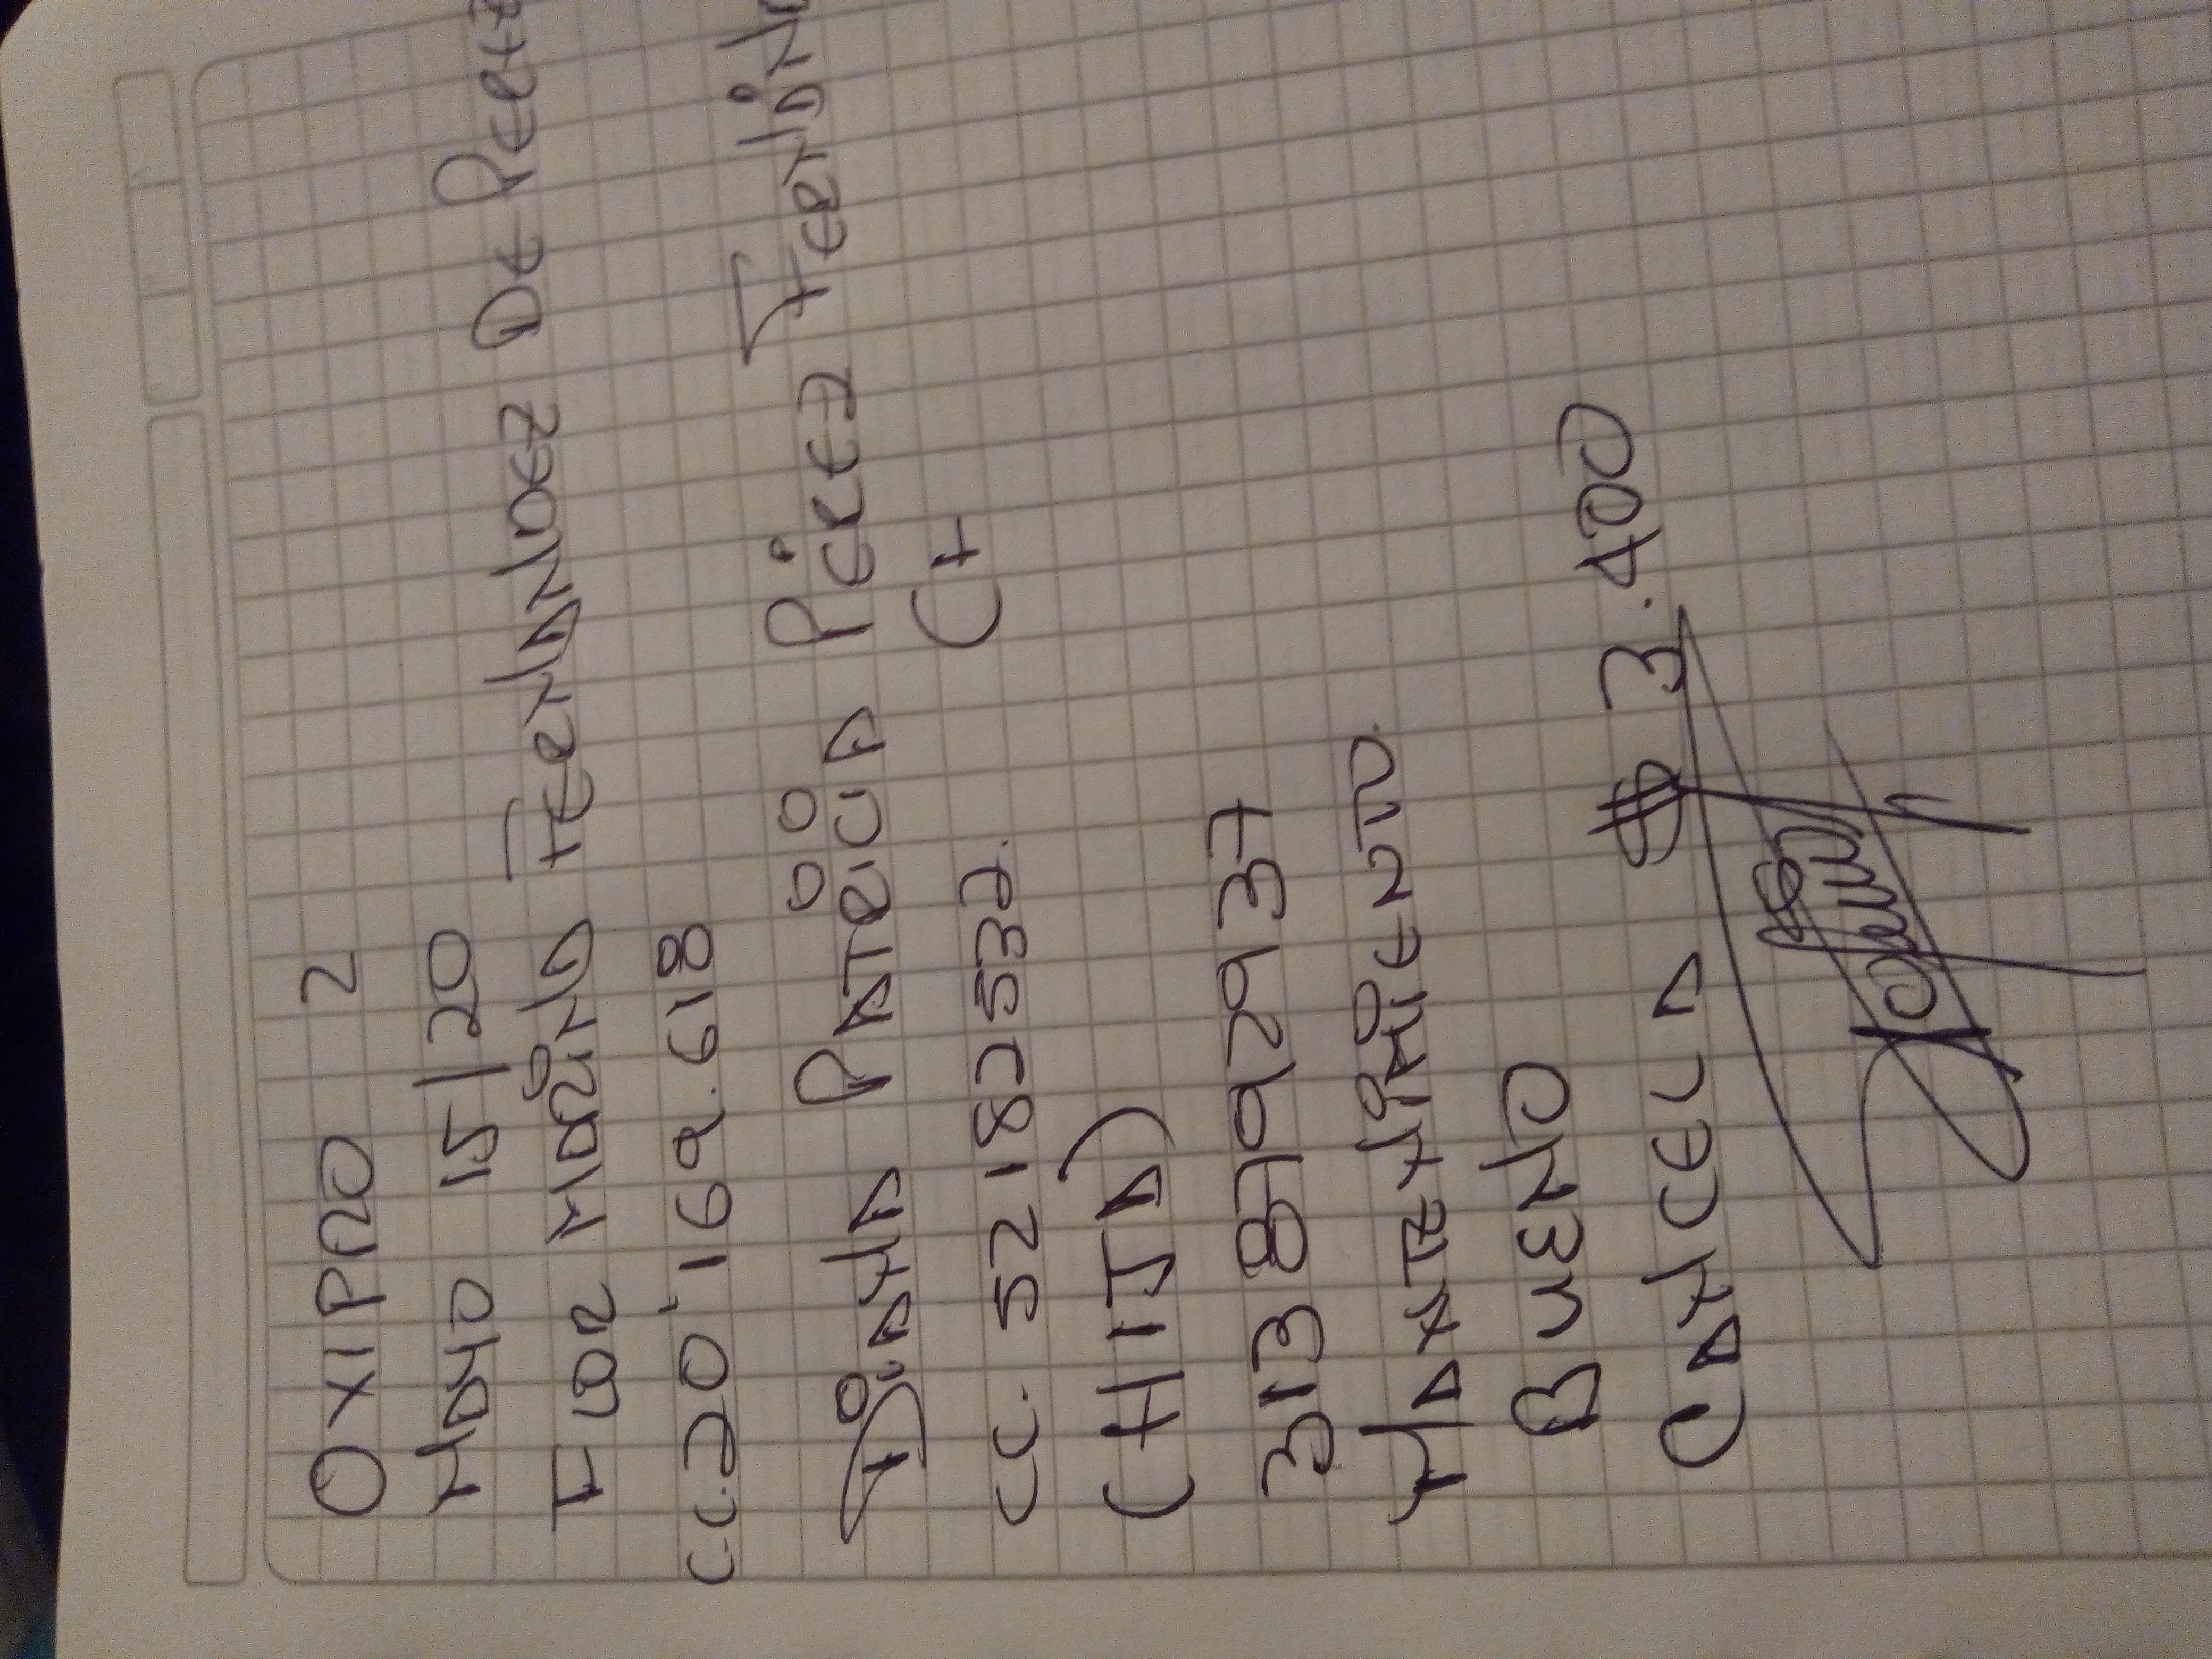 OXIPRO 2
MAYO 15/20
FLOR MARINA FERNANDEZ DE PEREZ
C.C. 20'169.618
DIANA PATRICIA PÉREZ FERNÁN
CC. 52182532.
(HIJA)
313 8792937
MANTENIMIENTO.
BUENO
CANCELA $ 3.400